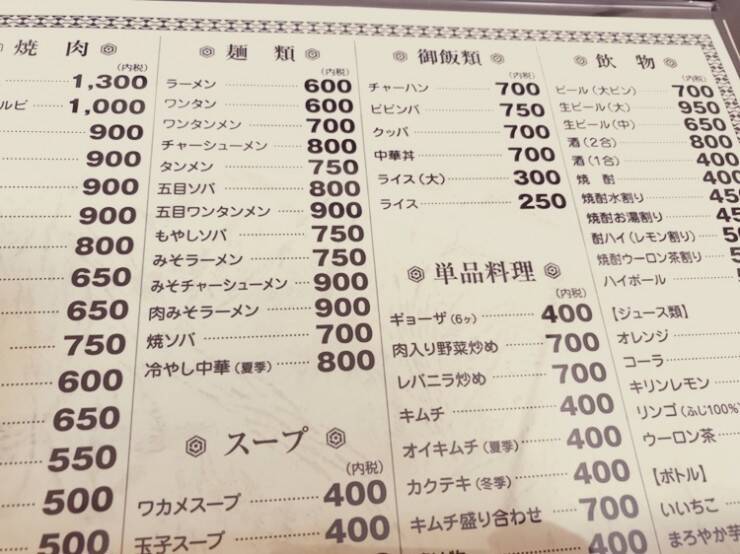 焼 肉
1,300
ルビ 1,000
900
900
900
900
800
650
650
750
600
650
550
500
500
麺 類
(内税)
ラーメン 600
ワンタン 600
ワンタンメン 700
チャーシューメン 800
タンメン 750
五目ソバ 800
五目ワンタンメン 900
もやしソバ 750
みそラーメン 750
みそチャーシューメン 900
肉みそラーメン 900
焼ソバ 700
冷やし中華(夏季) 800
スープ
(内税)
ワカメスープ 400
玉子スープ 400
御飯類
(内税)
チャーハン 700
ビビンバ 750
クッパ 700
中華丼 700
ライス(大) 300
ライス 250
単品料理
(内税)
ギョーザ(6ヶ) 400
肉入り野菜炒め 700
レバニラ炒め 700
キムチ 400
オイキムチ(夏季) 400
カクテキ(冬季) 400
キムチ盛り合わせ 700
400
飲 物
(内税)
ビール(大ビン) 700
生ビール(大) 950
生ビール(中) 650
酒(2合) 800
酒(1合) 400
焼 酎 400
焼酎水割り 45
焼酎お湯割り 45
酎ハイ(レモン割り) 5
焼酎ウーロン茶割り
ハイボール
【ジュース類】
オレンジ
コーラ
キリンレモン
リンゴ(ふじ100%
ウーロン茶
【ボトル】
いいちこ
まろやか芋